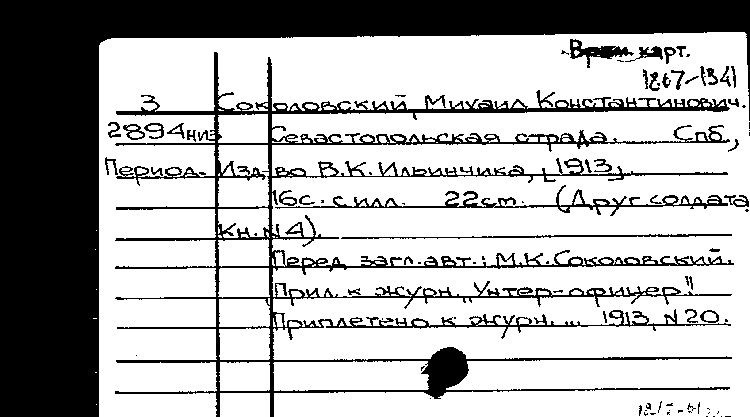 Врем. карт.
1867-1341
3 Соколовский, Михаил Константинович.
2894низ Севастопольская страда. Спб.,
Период. Изд-во В.К. Ильинчика, [1913].
16с. с илл. 22cm. (Друг солдата
Кн. N4).
Перед загл. авт.: М.К. Соколовский.
Прил. к журн. „Унтер-офицер"
Приплетено к журн. ... 1913, N20.